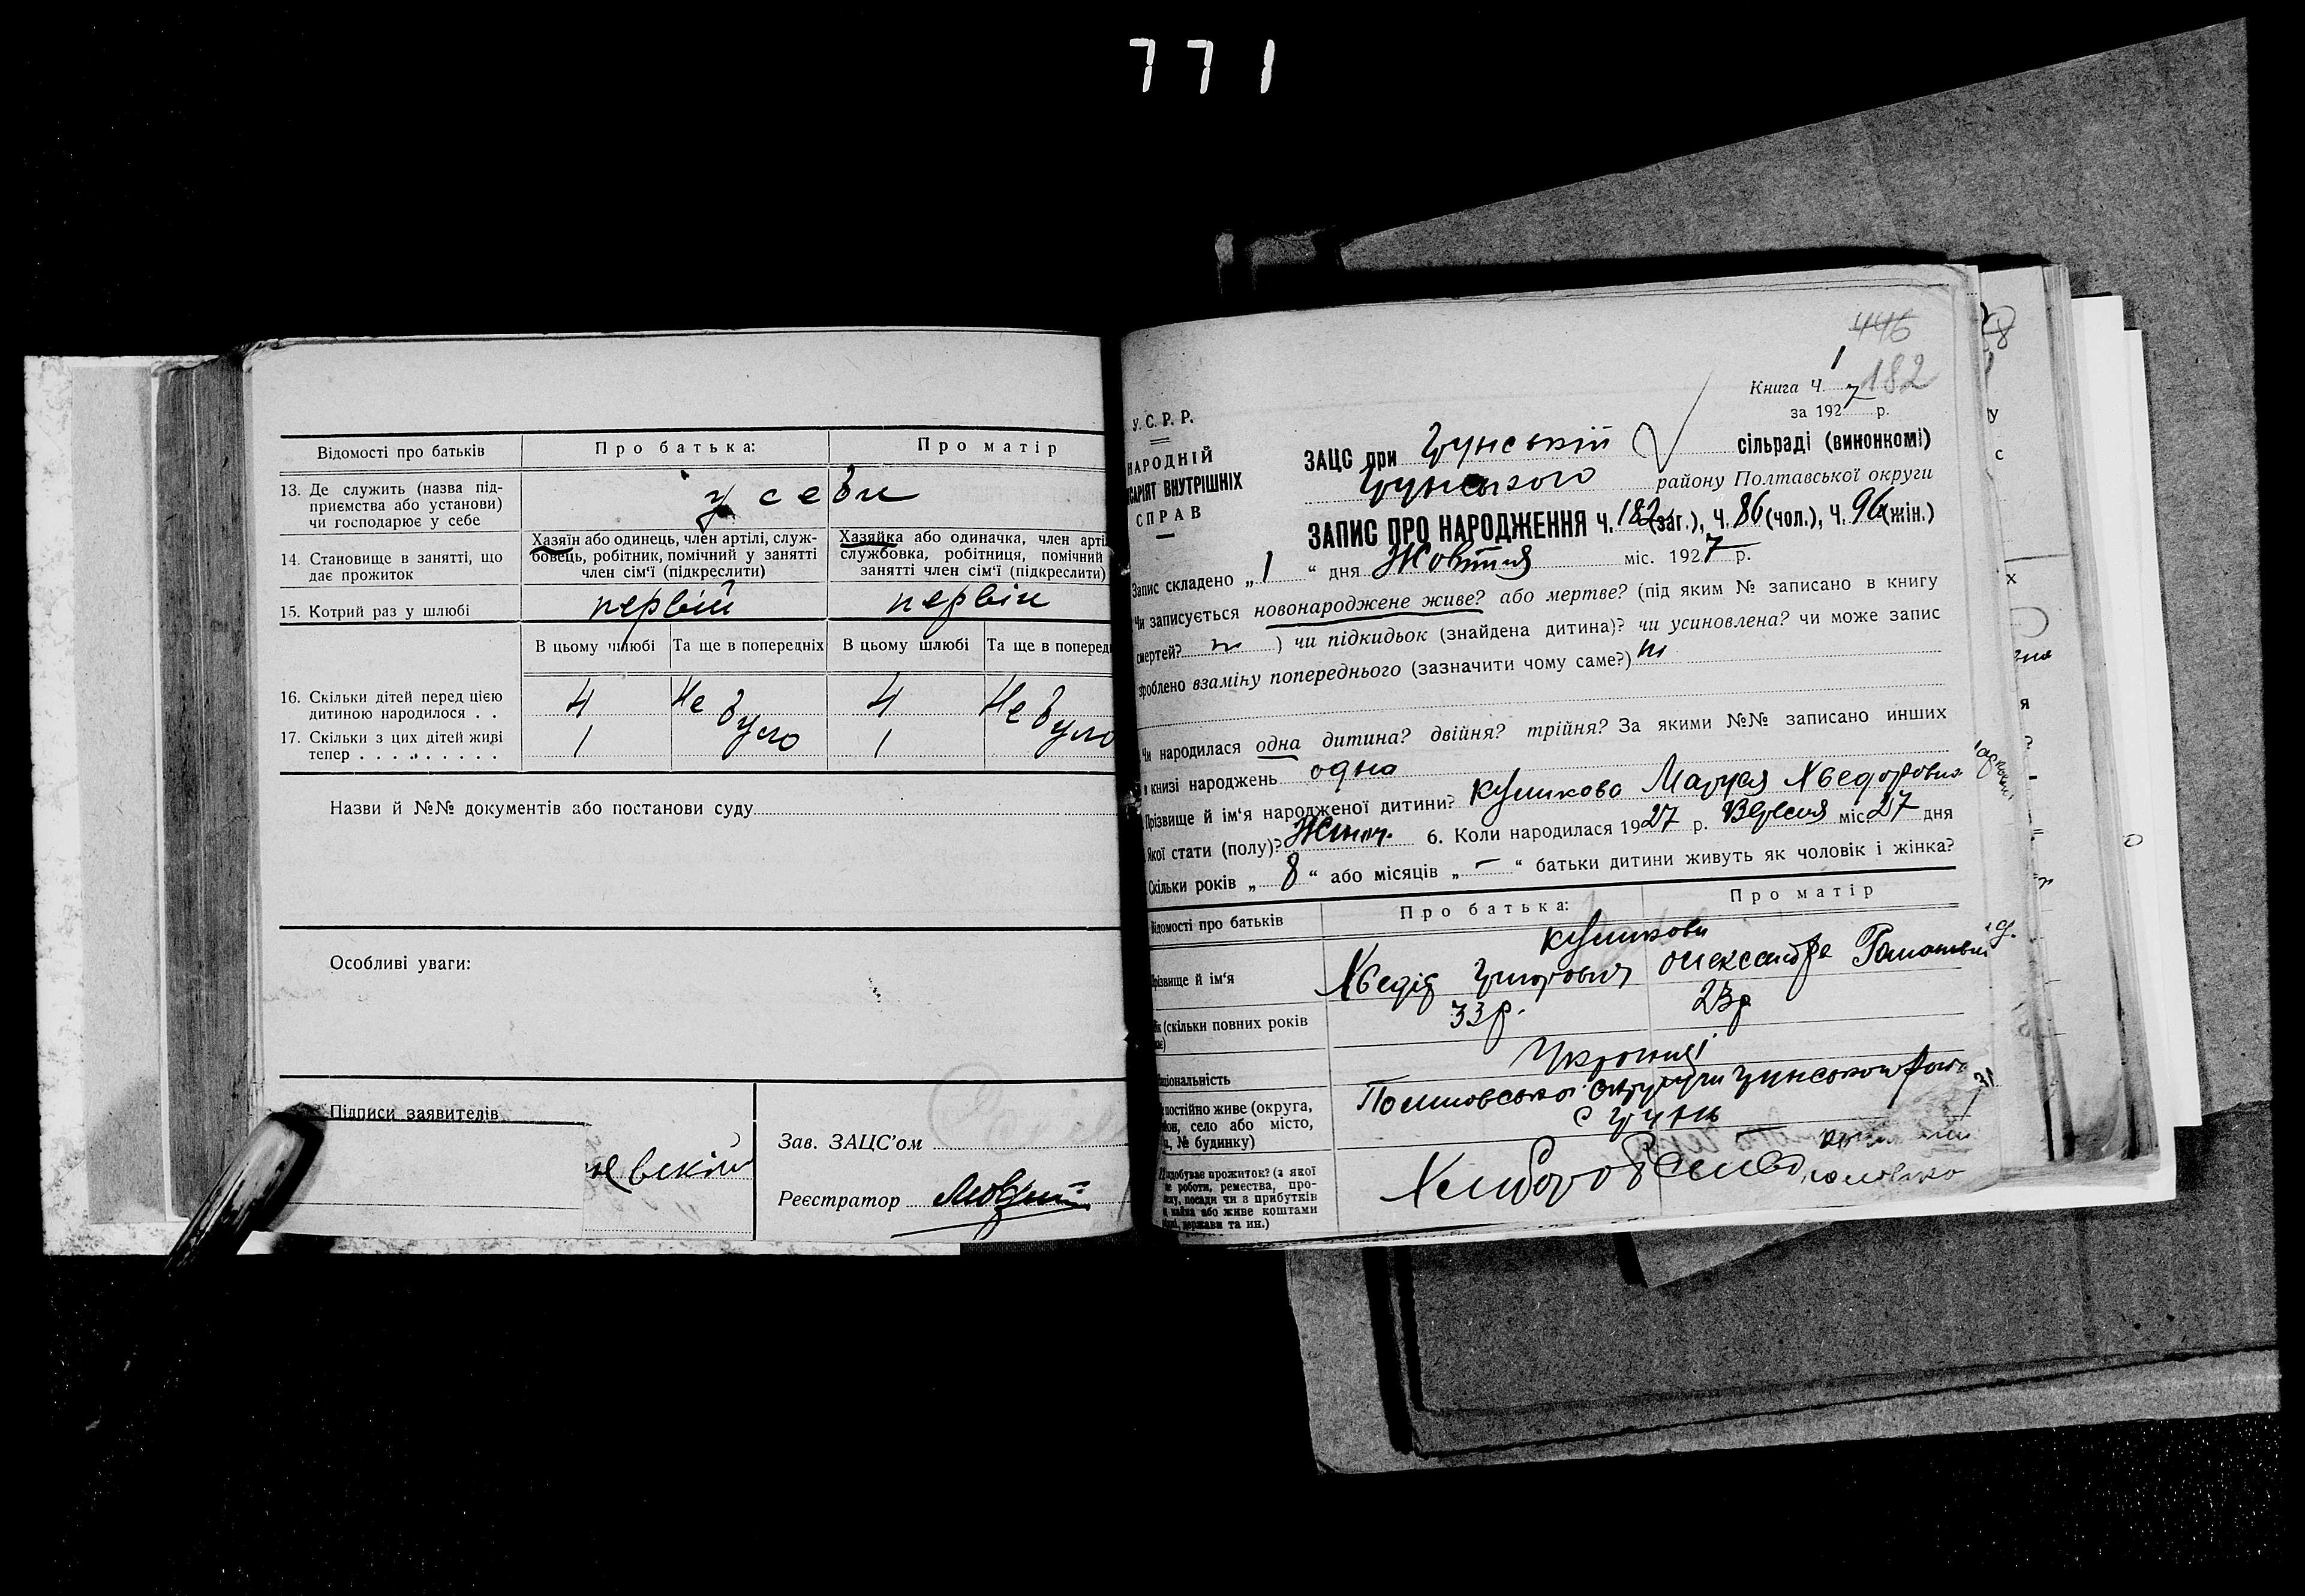 771
Відомості про батьків
Про батька:
Про матір
13. Де служить (назва під-
приємства або установи)
чи господарює у себе
у себи
14. Становище в занятті, що
дає прожиток
Хазяїн або одинець, член артілі, служ-
бовець, робітник, помічний у занятті
член сім'ї (підкреслити)
Хазяйка або одиначка, член арті
службовка, робітниця, помічний
занятті член сім'ї (підкреслити)
15. Котрий раз у шлюбі
первій
первін
В цьому шлюбі
Та ще в попередніх
В цьому шлюбі
Та ще в поперед
16. Скільки дітей перед цією
дитиною народилося . .
4
Не було
4
Не було
17. Скільки з цих дітей живі
тепер . . . . . . . . .
1
1
Назви й №№ документів або постанови суду
Особливі уваги:
Підписи заявителів
Зав. ЗАЦС'ом
Реєстратор
446
182
Книга Ч. 1
за 1927 р.
У. С. Р. Р.
НАРОДНІЙ
САРІЯТ ВНУТРІШНІХ
СПРАВ
ЗАЦС при Грунській сільраді (виконкомі)
Грунського району Полтавської округи
ЗАПИС ПРО НАРОДЖЕННЯ Ч. 182 (заг.), Ч. 86 (чол.), Ч. 96 (жін.)
Запис складено „1“ дня Жовтня міс. 1927 р.
Чи записується новонароджене живе? або мертве? (під яким № записано в книгу
смертей? ) чи підкидьок (знайдена дитина)? чи усиновлена? чи може запис
зроблено взаміну попереднього (зазначити чому саме?)
Чи народилася одна дитина? двійня? трійня? За якими №№ записано инших
в книзі народжень одна
Прізвище й ім'я народженої дитини? Маруся Хведоровна
Якої стати (полу)? Жіноч. 6. Коли народилася 1927 р. Вересня міс 27 дня
Скільки років „8“ або місяців „-“ батьки дитини живуть як чоловік і жінка?
Відомості про батьків
Про батька:
Про матір
Прізвище й ім'я
Хведір Григорович
Олександра
(скільки повних років
33 р.
23 р
ціональність
Українці
постійно живе (округа,
он, село або місто,
№ будинку)
Полтовської округи Грунського
с Грунь
здобуває прожиток? (з якої
роботи, ремества, про-
посади чи з прибутків
або живе коштами
держави та ин.)
Хлиборобство